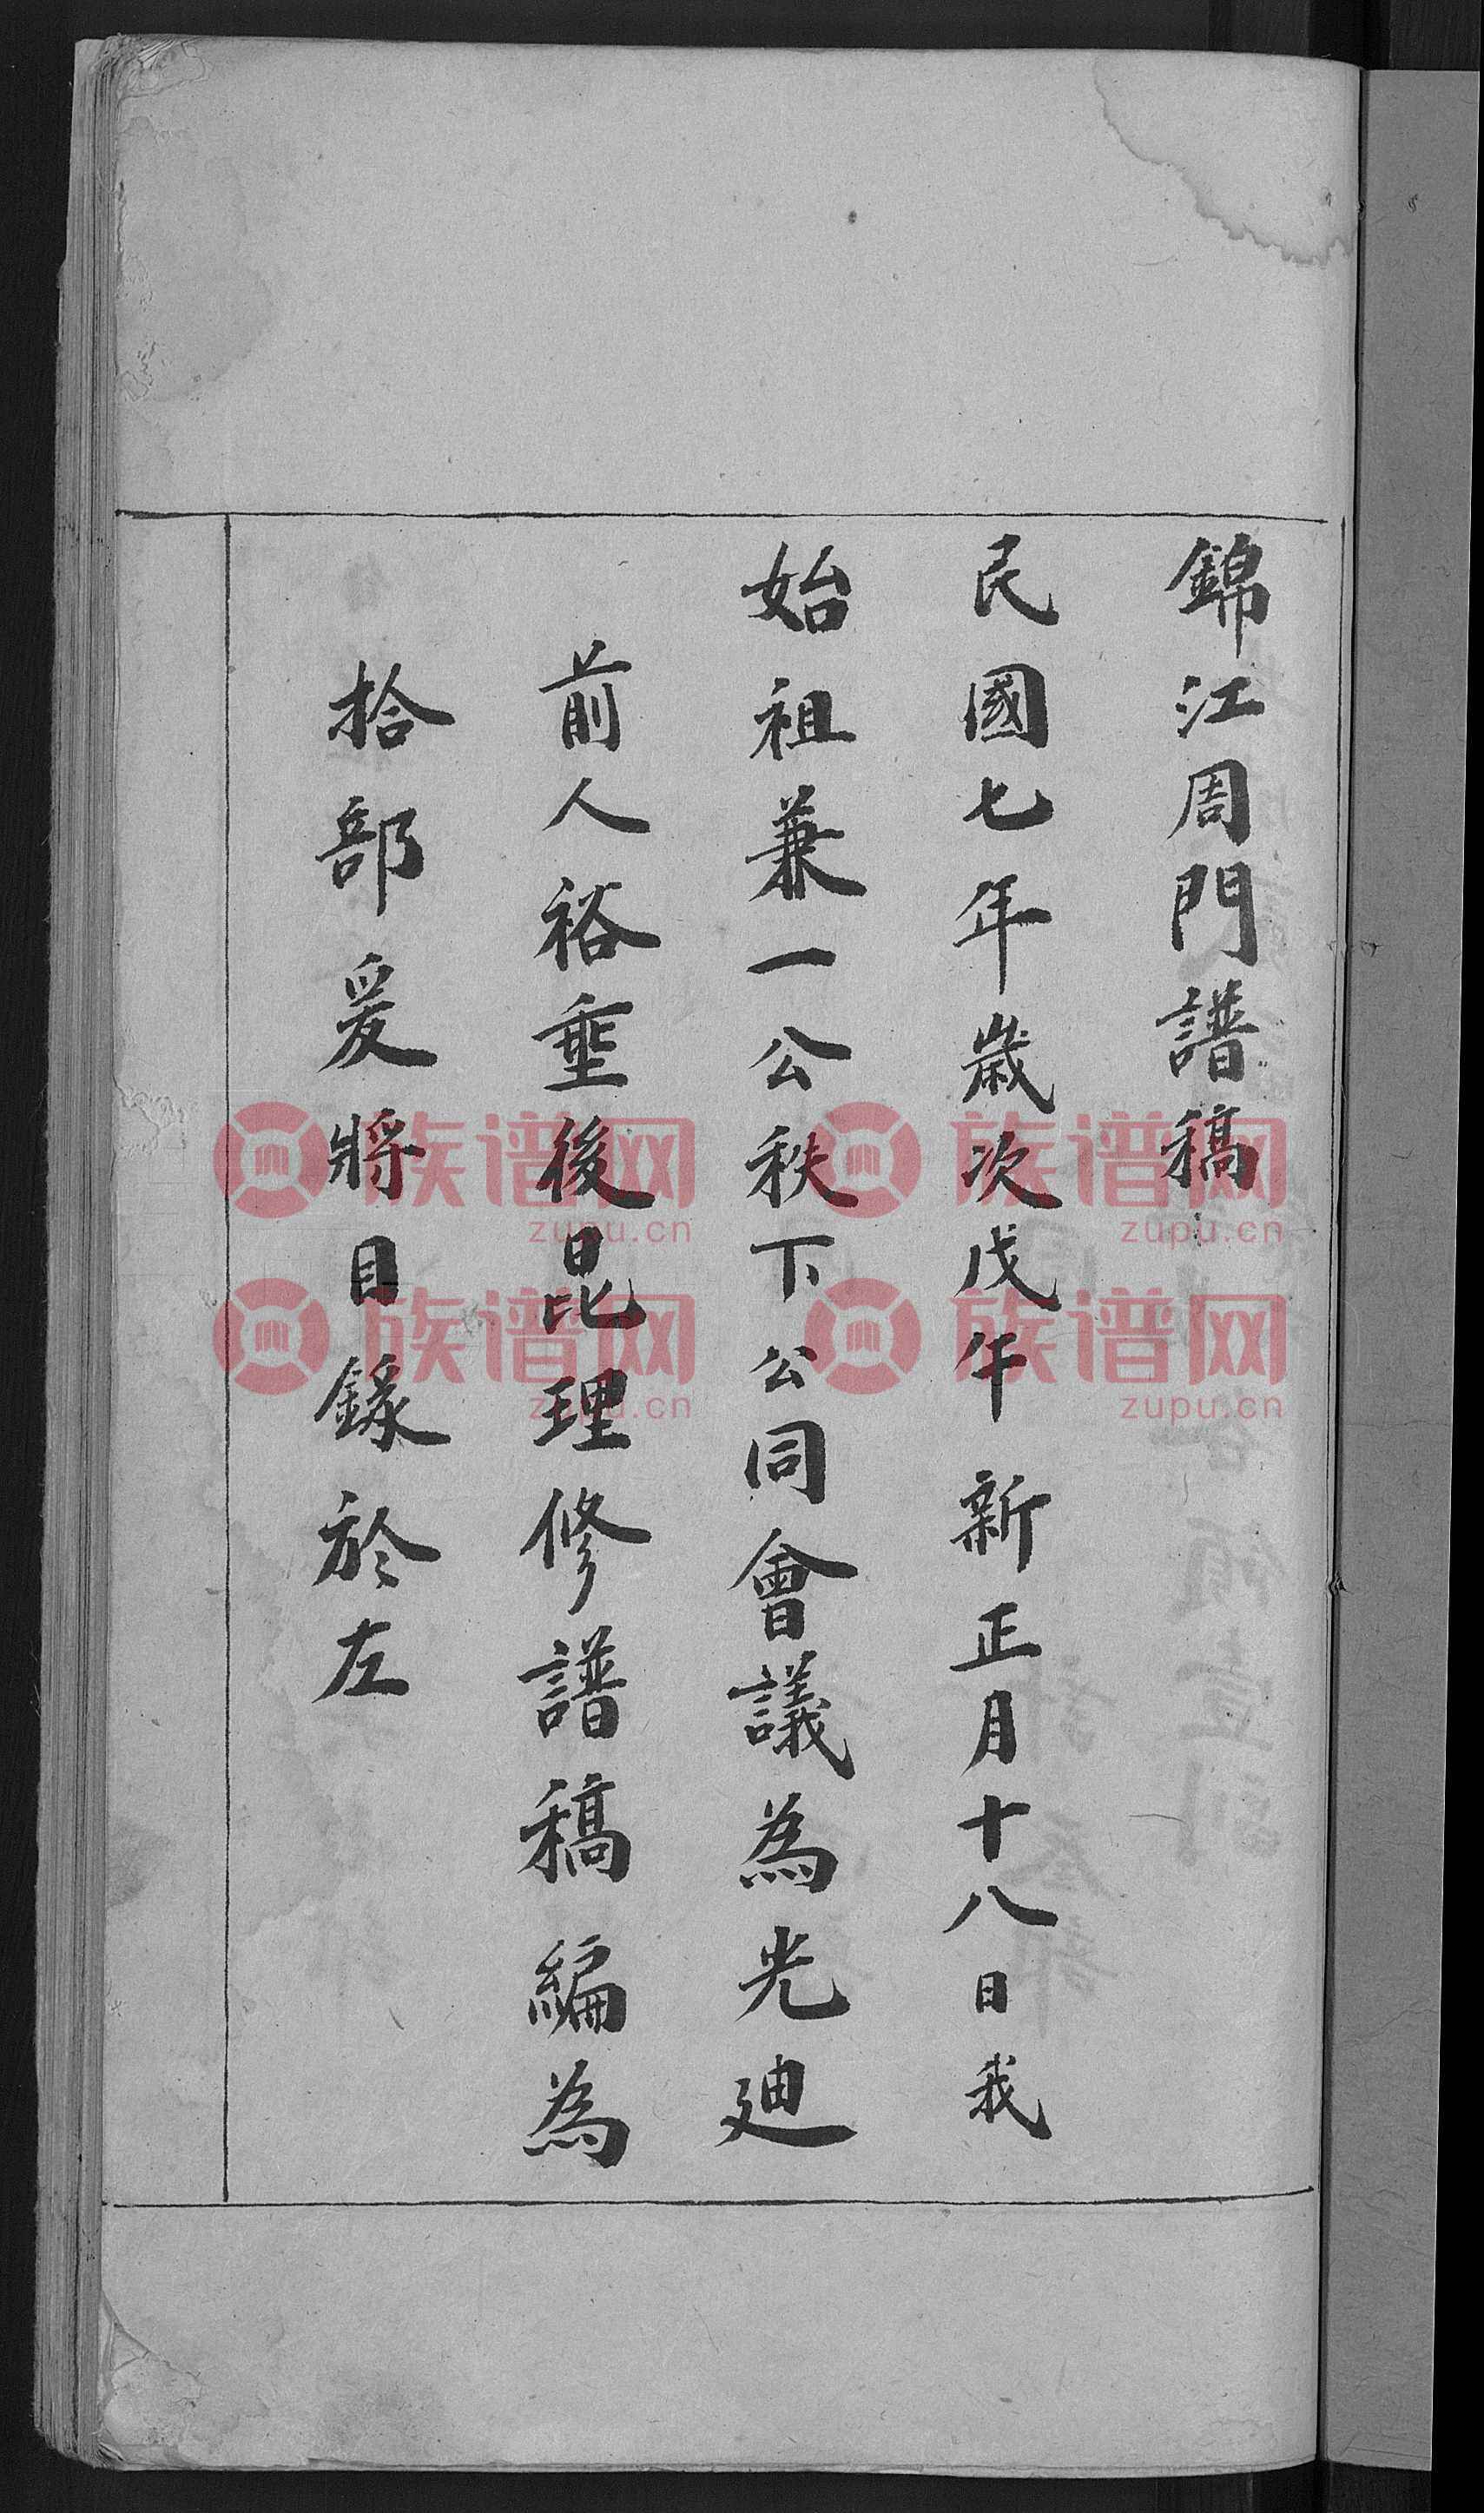 錦江周門譜稿
民國七年歲次戊午新正月十八日我
始祖兼一公秩下公同會議為光廸
前人裕垂後昆理修譜稿編為
拾部爰將目錄於左
族谱网
zupu.cn
族谱网
zupu.cn
族谱网
zupu.cn
族谱网
zupu.cn